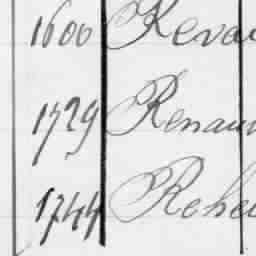 1600 Reva
1729 Renau
1744 Rehe